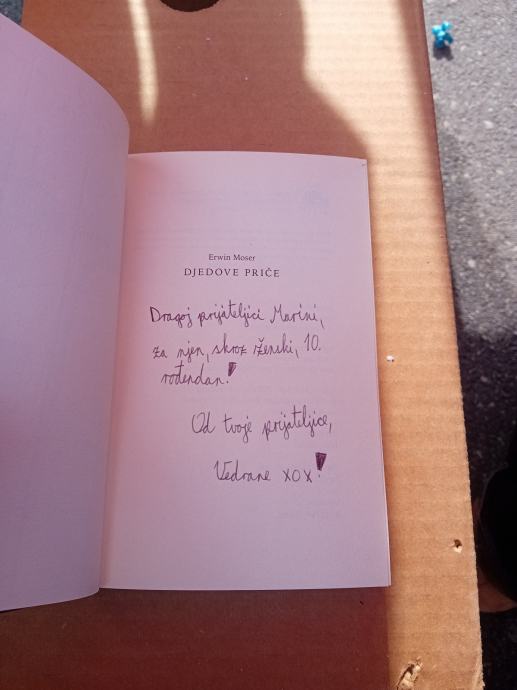 Erwin Moser
DJEDOVE PRIČE
Dragoj prijateljici Marini,
za njen, skroz ženski, 10.
rođendan!
Od tvoje prijateljice,
Vedrane xox!